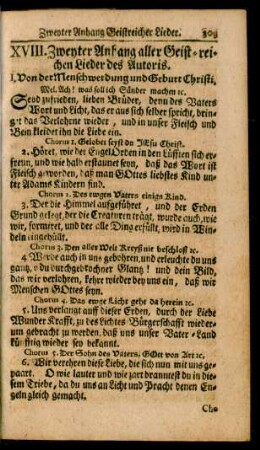 Zweyter Anhang Geistreicher Lieder. 809
XVIII. Zweyter Anfang aller Geist-rei-
chen Lieder des Autoris.
1. Von der Menschwerdung und Geburt Christi,
Mel. Ach! was soll ich Sünder machen ꝛc.
Seyd zufrieden, lieben Brüder, denn des Vaters
Wort und Licht, das er aus sich selber spricht, brin-
get das Verlohrne wieder, und in unser Fleisch und
Bein kleidet ihn die Liebe ein.
Chorus 1. Gelobet seyst du JEsu Christ.
2. Höret, wie der Engel Orden in den Lüfften sich er-
freun, und wie halb erstaunet seyn, daß das Wort ist
Fleisch geworden, daß man GOttes liebstes Kind unter
Adams Kindern find.
Chorus 2. Des ewgen Vaters einigs Kind.
3. Der die Himmel aufgeführet, und der Erden
Grund gelegt, der die Creaturen trägt, wurde auch, wie
wir, formiret, und der alle Ding erfüllt, wird in Win-
deln eingehüllt.
Chorus 3. Den aller Welt Kreyß nie beschloß ꝛc.
4. Werde auch in uns gebohren, und erleuchte du uns
gantz, o du durchgebrochner Glantz! und dein Bild,
das wir verlohren, kehre wieder bey uns ein, daß wir
Menschen GOttes seyn.
Chorus 4. Das ewge Licht geht da herein ꝛc.
5. Uns verlangt auff dieser Erden, durch der Liebe
Wunder-Krafft, zu des Lichtes Bürgerschafft wieder-
um gebracht zu werden, daß uns unser Vater-Land
künfftig wieder sey bekannt.
Chorus 5. Der Sohn des Vaters, GOtt von Art ꝛc.
6. Wir verehren diese Liebe, die sich nun mit uns ge-
paart. O wie lauter und wie zart branntest du in die-
sem Triebe, da du uns an Licht und Pracht denen En-
geln gleich gemacht.
Cho